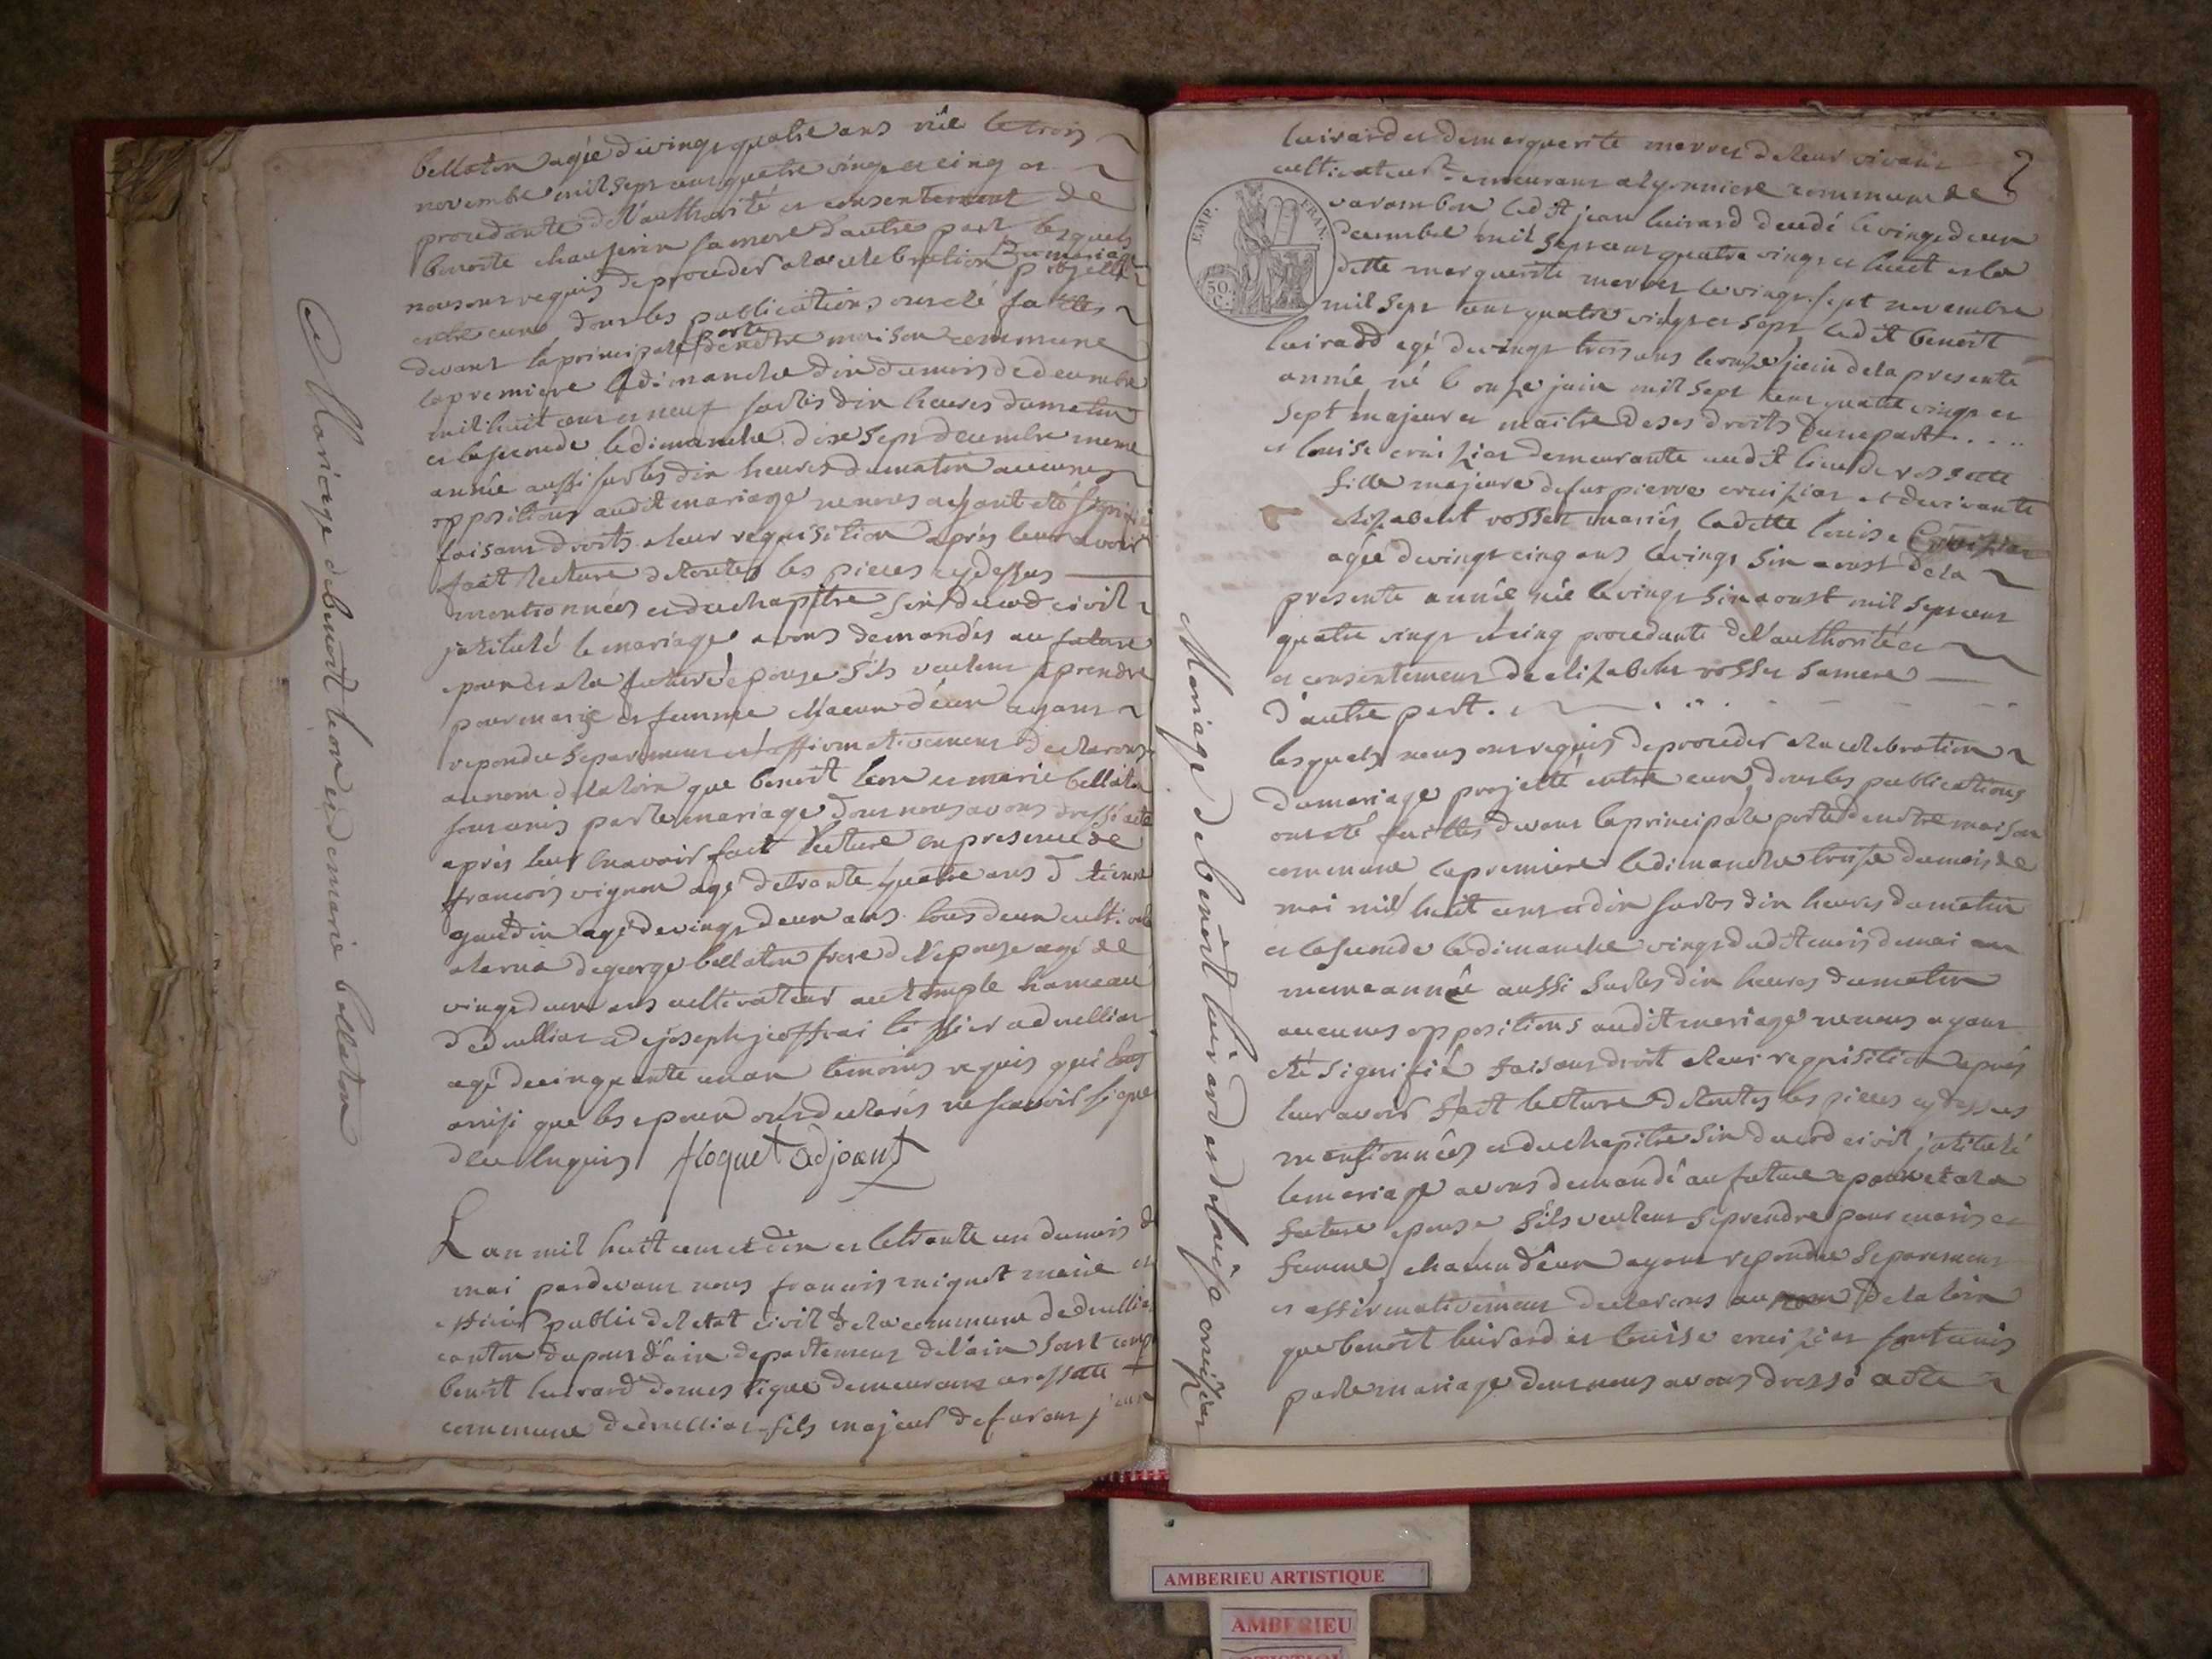 Mariage de benoit leon et de marie bellaton
bellaton agée de vingt quatre ans née le trois
novembre mil sept cent quatre vingt et cinq et
procedante de l'authorité et consentement de
benoite sa mere d'autre part lesquels
nous ont requis de proceder a la celebration du mariage
projetté
entre eux dont les publications ont été faittes
devant la principale porte de notre maison commune
la premiere le dimanche dix du mois de decembre
mil huit cent et neuf sur les dix heures du matin
et la seconde le dimanche dix sept decembre meme
année aussi sur les dix heures du matin aucunes
oppositions audit mariage ne nous ayant eté signifié
faisant droits a leur requisition après leur avoir
fait lecture de toutes les pieces cy dessus
mentionnées et du chapitre six du code civil
intitulé le mariage avons demandés au future
epoux et a la future epouse s'ils veulent se prendre
pour marie et femme chacun d'eux ayant
repondu separement et affirmativement declarons
au nom de la loix que benoit leon et marie bellaton
sont unis par le mariage dont nous avons dressé acte
après leur en avoir fait lecture en presence de
francois vignon agé de trante quatre ans d'etienne
gaudin agé de vingt deux ans tous deux
de george bellaton frere de l'epouse agé de
vingt deux ans cultivateur au temple hameau
de druillias et de joseph jeoffrai a druillias
agé de cinquante un an temoins requis qui
ainsi que les epoux ont declarés ne scavoir signer
de ce enquis floquet adjoant
L'an mil huit cent et dix et le trante un du mois de
mai pardevant nous francois miquet maire et
officier public de l'etat civil de la commune de druillias
canton du pont d'ain departement de l'ain sont comp
benoit luirard domestique demeurant a rossette
commune de druillias fils majeur de jean
2
luirard et de marguerite merver de leur vivant
cultivateurs demeurant a lyonniere commune de
varambon ledit jean luirard decedé le vingt deux
decembre mil sept cent quatre vingt et huit et la
dette marguerite merver le vingt sept novembre
mil sept cent quatre vingt et sept ledit benoit
luirard agé de vingt trois ans le onze juin de la presente
année né le onze juin mil sept cent quatre vingt et
sept majeur et maitre de ses droits d'une part . . . .
et louise cruiziat demeurante audit lieu de rossette
fille majeure de fut pierre cruiziat et de vivante
elizabeth rosset mariés ladette louise Cruiziat
agée de vingt cinq ans le vingt six aoust de la
presente année née le vingt six aoust mil sept cent
quatre vingt et cinq procedante de l'authorité et
et consentement de elizabeth rosset sa mere
d'autre part.
lesquels nous ont requis de proceder a la celebration
du mariage projetté entre eux dont les publications
ont eté faittes devant la principale porte de notre maison
commune la premiere le dimanche treize du mois de
mai mil huit cent et dix sur les dix heures du matin
et la seconde le dimanche vingt dudit mois de mai
meme année aussi sur les dix heures du matin
aucunes oppositions audit mariage ne nous ayant
eté signifié faisant droit a leur requisition après
leur avoir fait lecture de toutes les pieces cy dessus
mensionnées et du chapitre six du code civil intitulé
le mariage avons demandé au future epoux et a la
future epouse s'ils veulent se prendre pour maris et
femme chacun d'eux ayant repondue separement
et affirmativement declarons au nom de la loix
que benoit luirard et louise cruiziat sont unis
par le mariage dont nous avons dressé acte
Mariage de benoit luirard et de louise cruiziat
EMP. FRAN.
50 C.
AMBERIEU ARTISTIQUE
AMBERIEU
ARTISTIQUE